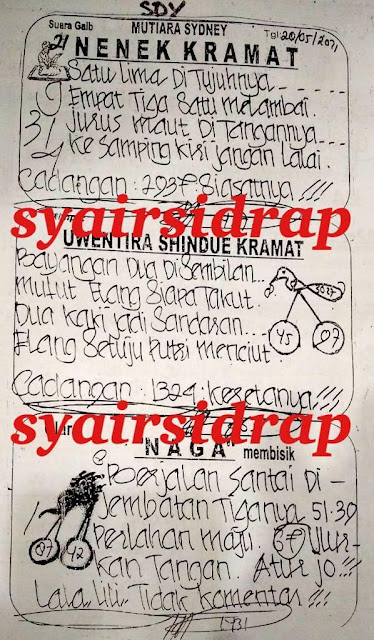 SDY
Suara Gaib MUTIARA SYDNEY Tgl: 20/05/2021
NENEK KRAMAT
Satu Lima Di Tujuhnya
Empat Tiga Satu melambai.
Jurus maut Di Tangannya
Ke Samping Kiri Jangan Lalai.
Cadangan : 2937. Siasatnya !!!
syairsidrap
UWENTIRA SHINDUE KRAMAT
Bayangan Dua Di Sembilan...
mulut Elang Siapa Takut.
Dua Kaki Jadi Sandaran
Elang Setuju Putri menciut.
45 07
Cadangan : 1324.
syairsidrap
"NAGA" membisik
Berjalan Santai Di -
Jembatan Tiganya 51.39
Perlahan maju 67 Ulur-
kan Tangan. Atur Jo !!!
97 42
Lala Lili Tidak Komentar !!!